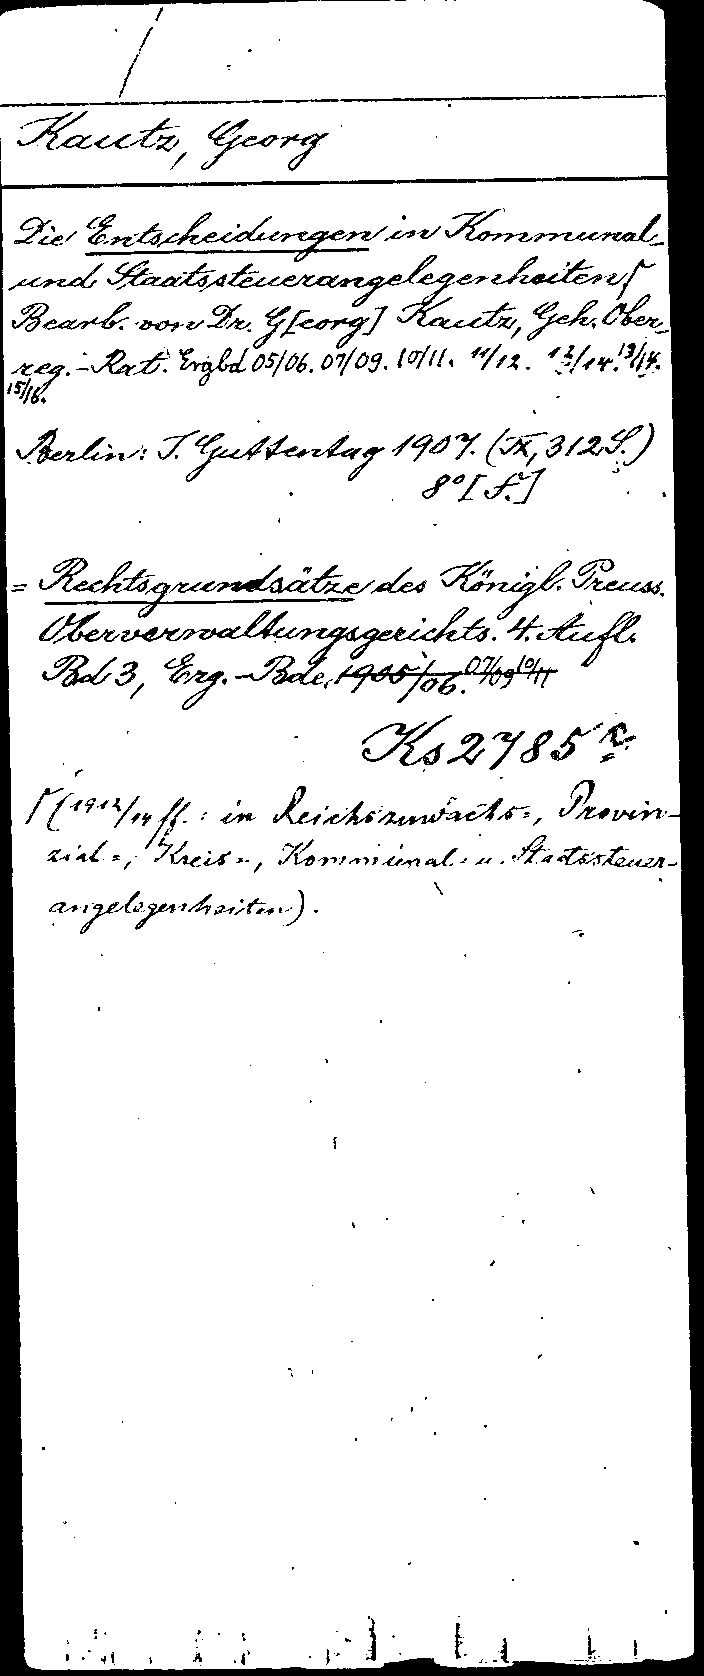 Kautz, Georg
Die Entscheidungen in Kommunal-
und Staatssteuerangelegenheiten⌈
Bearb. von Dr. G[eorg] Kautz, Geh. Ober-
reg.-Rat. Ergbd 05/06. 07/09. 10/11. 11/12. 12/14. 13/14.
15/16.
Berlin: J. Guttentag 1907. (IX, 312 S.)
8° [f.]
= Rechtsgrundsätze des Königl. Preuss.
Oberverwaltungsgerichts. 4. Aufl.
Bd 3, Erg.-Bde. 1905/06. 07/09 10/11
Ks 2785
⌈(1912/14 ff.: in Reichszuwachs=, Provin-
zial=, Kreis=, Kommunal- u. Staatssteuer-
angelegenheiten).